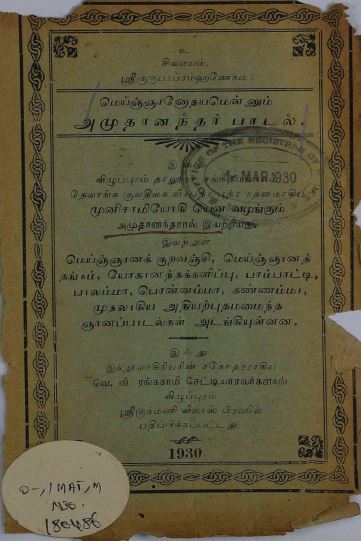 உ
சிவமயம்.
மெய்ஞ்ஞானோதயமென்னும்
அமுதானந்தர் பாடல்.
OF THE REGISTRAR OF
MAR 1930
இஃது
விழுப்புரம் தாலூகா
முனிசாமியோகி யென வழங்கும்
அமுதானந்தரால் இயற்றியது.
இவற்றுள்
மெய்ஞ்ஞானக் குறவஞ்சி, மெய்ஞ்ஞானத்
தங்கம், யோகானந்தக்களிப்பு, பாம்பாட்டி,
பாலம்மா, பொன்னம்மா, கண்ணம்மா,
முதலாகிய அதியற்புதமமைந்த
ஞானப்பாடல்கள் அடங்கியுள்ளன.
இஃது
இந்நூலாசிரியரின் சகோதரராகிய
வே. லி. ரங்கசாமி செட்டியாரவர்களால்
விழுப்புரம்
ஸ்ரீருக்மணி விலாஸ பிரஸில்
பதிப்பிக்கப்பட்டது.
1930.
O-,1MAT,M
N30
180486